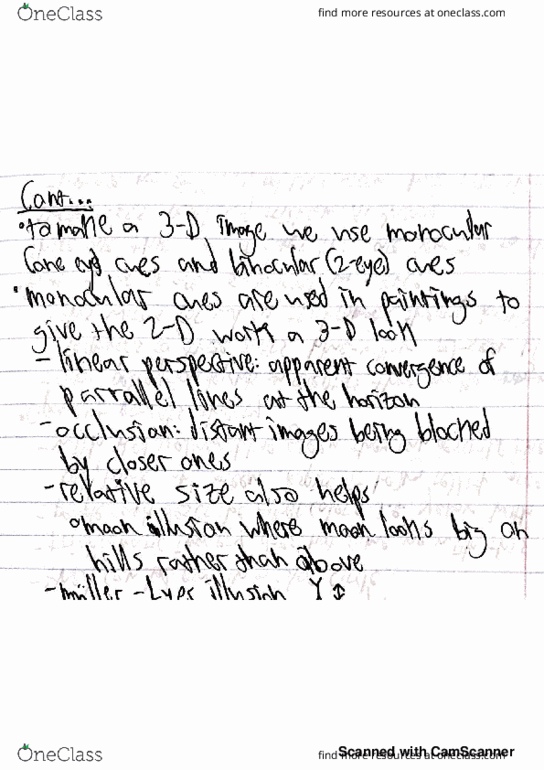 OneClass
find more resources at oneclass.com
Cont...
•to make a 3-D image we use monocular
(one eye) cues and binocular (2-eye) cues
•monocular cues are used in paintings to
give the 2-D work a 3-D look
-linear perspective: apparent convergence of
parrallel lines at the horizon
-occlusion: distant images being blocked
by closer ones
-relative size also helps
moon illusion where moon looks big on
hills rather than above
-müller-Lyer illusion
OneClass
find more resources at oneclass.com
Scanned with CamScanner